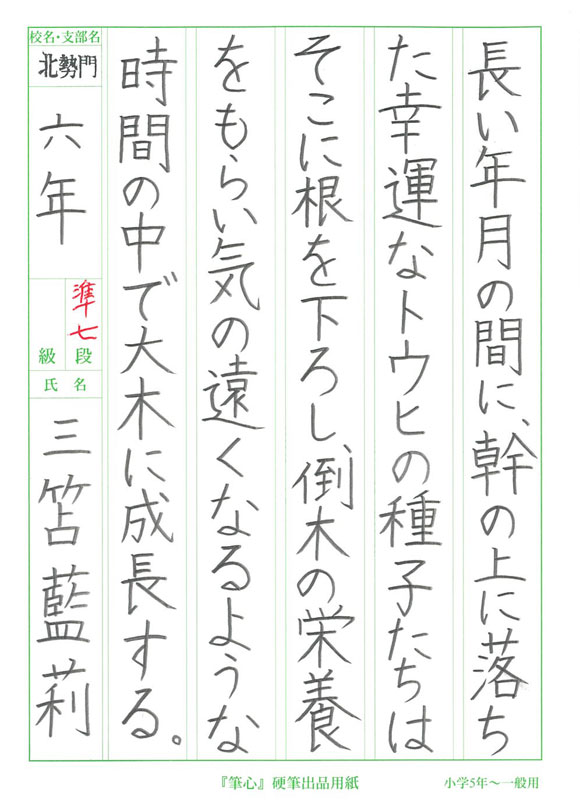 長い年月の間に、幹の上に落ち
た幸運なトウヒの種子たちは
そこに根を下ろし、倒木の栄養
をもらい気の遠くなるような
時間の中で大木に成長する。
校名・支部名
北勢門
六年
準七
段
級
氏名
三笘藍莉
『筆心』硬筆出品用紙
小学5年〜一般用